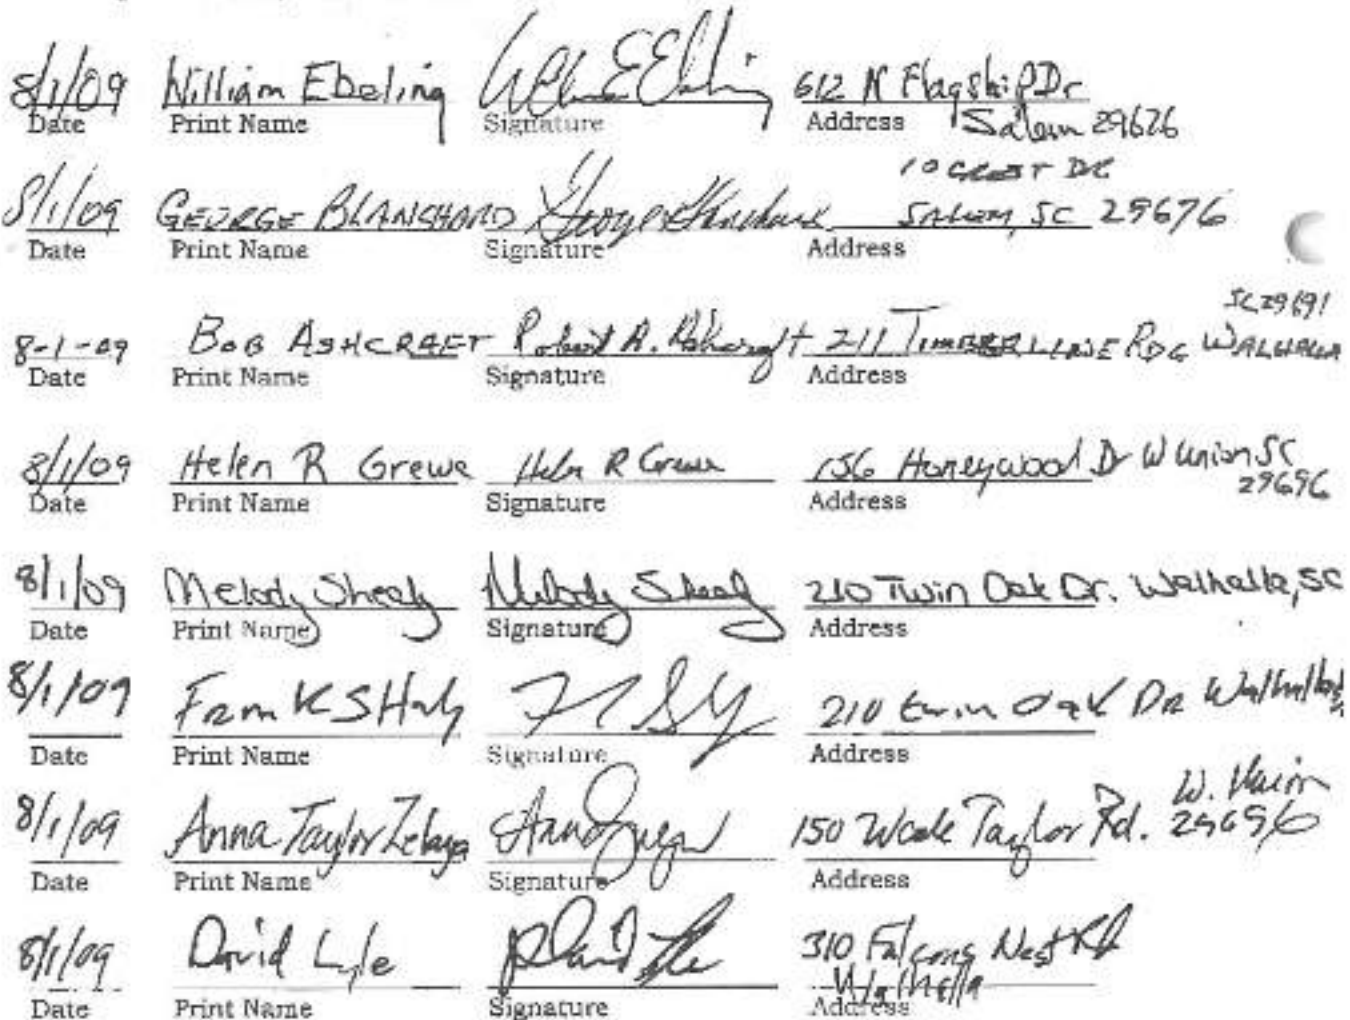 8/1/09 William Ebeling 612 N Flagship Dr
Date Print Name Signature Address Salem 29676
10 Crest Dr
8/1/09 GEORGE BLANCHARD SALEM, SC 29676
Date Print Name Signature Address
SC 29691
8-1-09 BOB ASHCRAFT Robert A. Ashcraft 211 TIMBERLINE RDG WALHALLA
Date Print Name Signature Address
8/1/09 Helen R Grewe Helen R Grewe 156 Honeywood Dr W Union SC
Date Print Name Signature Address 29696
8/1/09 Melody Shealy Melody Shealy 210 Twin Oak Dr. Walhalla, SC
Date Print Name Signature Address
8/1/09 Frank 210 twin Oak DR Walhalla
Date Print Name Signature Address
W. Union
8/1/09 Anna Taylor Zelaya 150 Wade Taylor Rd. 29696
Date Print Name Signature Address
8/1/09 David Lyle David Lyle 310 Falcons Nest Rd
Walhalla
Date Print Name Signature Address